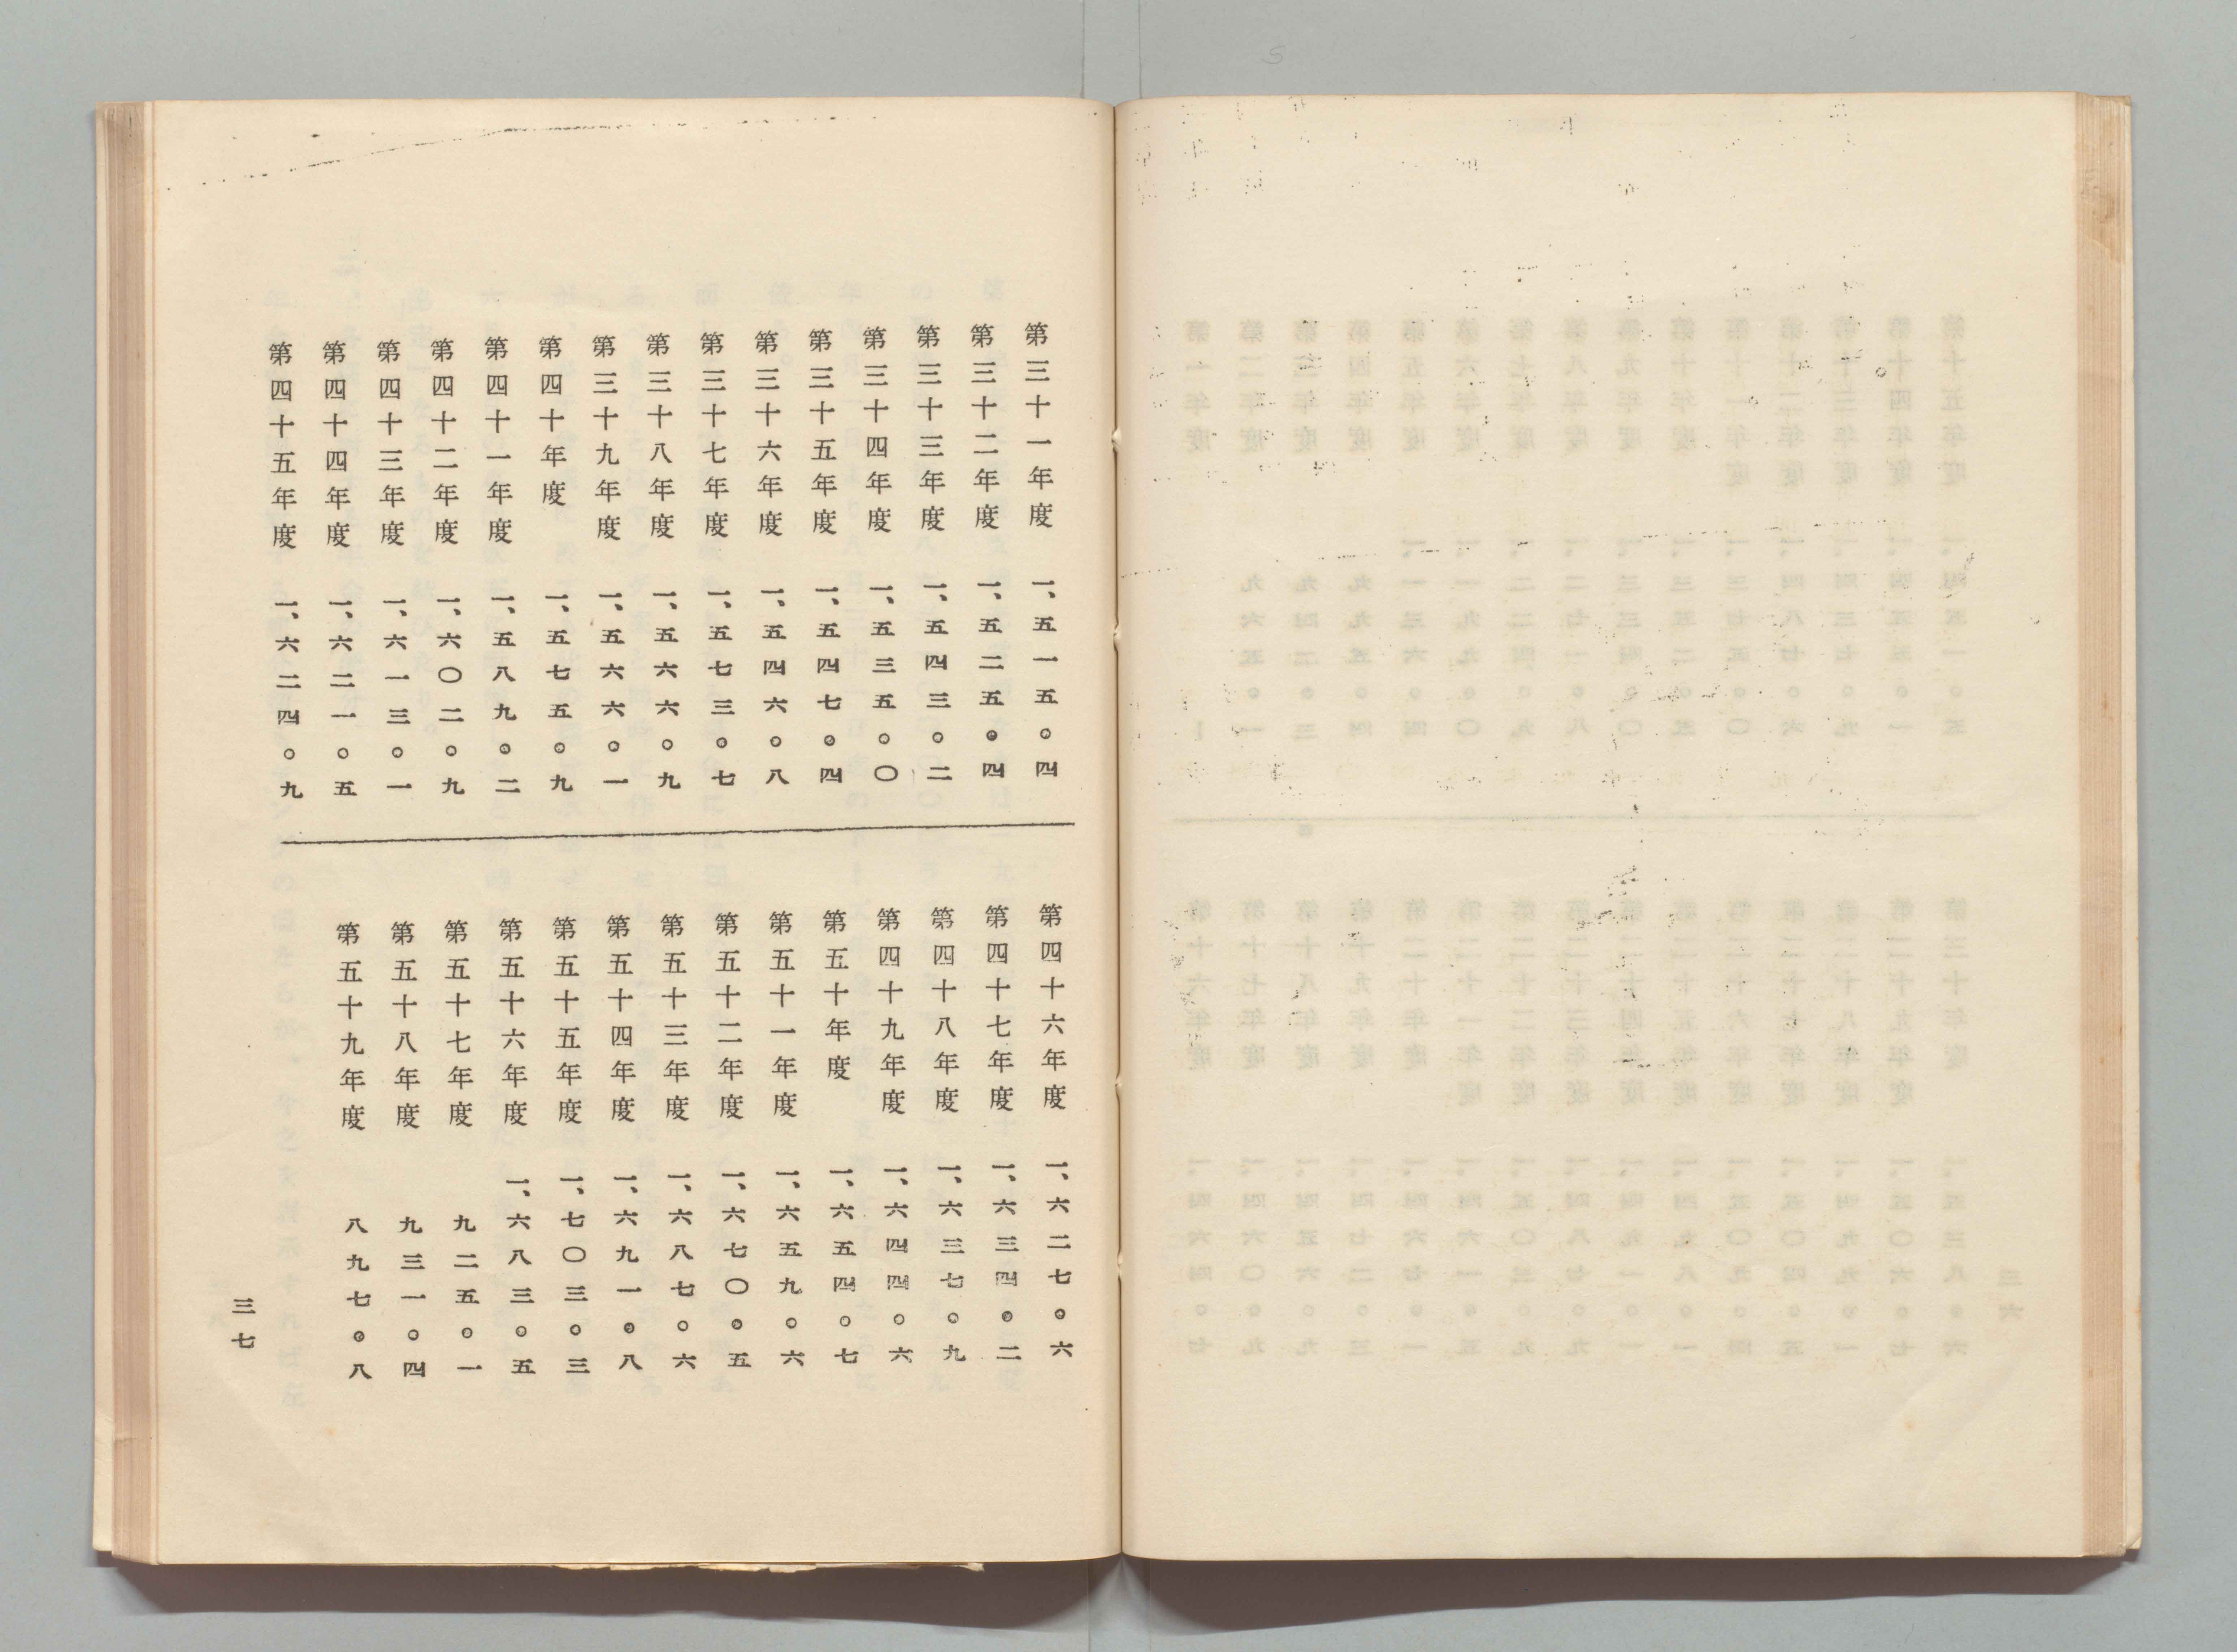 第三十一年度 一、五一五。四
第三十二年度 一、五二五。四
第三十三年度 一、五四三。二
第三十四年度 一、五三五。〇
第三十五年度 一、五四七。四
第三十六年度 一、五四六。八
第三十七年度 一、五七三。七
第三十八年度 一、五六六。九
第三十九年度 一、五六六。一
第四十年度 一、五七五。九
第四十一年度 一、五八九。二
第四十二年度 一、六〇二。九
第四十三年度 一、六一三。一
第四十四年度 一、六二一。五
第四十五年度 一、六二四。九
第四十六年度 一、六二七。六
第四十七年度 一、六三四。二
第四十八年度 一、六三七。九
第四十九年度 一、六四四。六
第五十年度 一、六五四。七
第五十一年度 一、六五九。六
第五十二年度 一、六七〇。五
第五十三年度 一、六八七。六
第五十四年度 一、六九一。八
第五十五年度 一、七〇三。三
第五十六年度 一、六八三。五
第五十七年度 九二五。一
第五十八年度 九三一。四
第五十九年度 八九七。八
三七